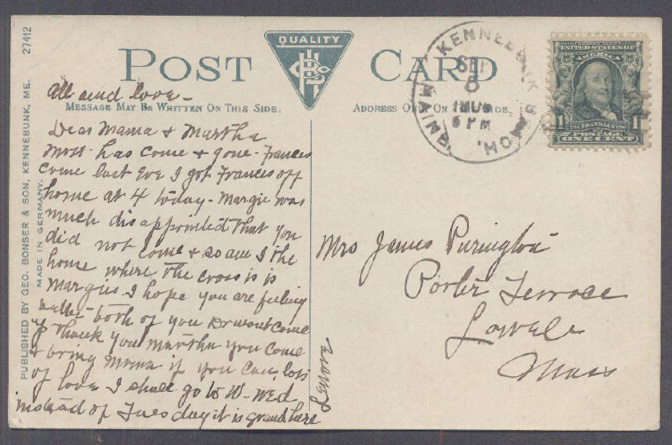 27412
PUBLISHED BY GEO. BONSER & SON, KENNEBUNK, ME.
MADE IN GERMANY.
QUALITY
POST CARD
MESSAGE MAY BE WRITTEN ON THIS SIDE.
ADDRESS ON ON THIS SIDE,
KENNEBUNK
MAINE
SEP
8
6 PM
UNITED STATES OF
AMERICA
FRANKLIN
1 1
ONE CENT
all send love -
Dear Mama & Martha
Mott has come & gone - Frances
come last Eve I got Frances off
home at 4 today - Margie was
much disappointed that you
did not come & so am I the
home where the cross is is
Margies. I hope you are feeling
better both of you wont come
& thank you Martha you come
& bring Mama if you can, lots
of love I shall go to W- Wed
instead of Tuesday it is grand here
Lenore
Mrs James Purington
Porter Terrace
Lowell
Mass